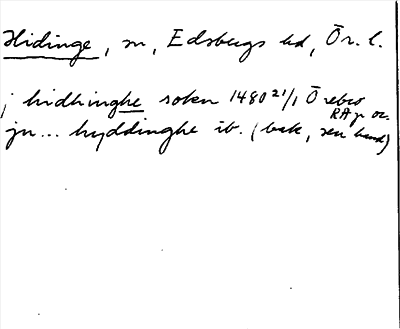 Hidinge, sn, Edsbergs hd, Ör. l.
j hidhinghe soken 1480 21/1 Örebro
RAp or.
jn... hyddinghe ib. (bak, sen hand)